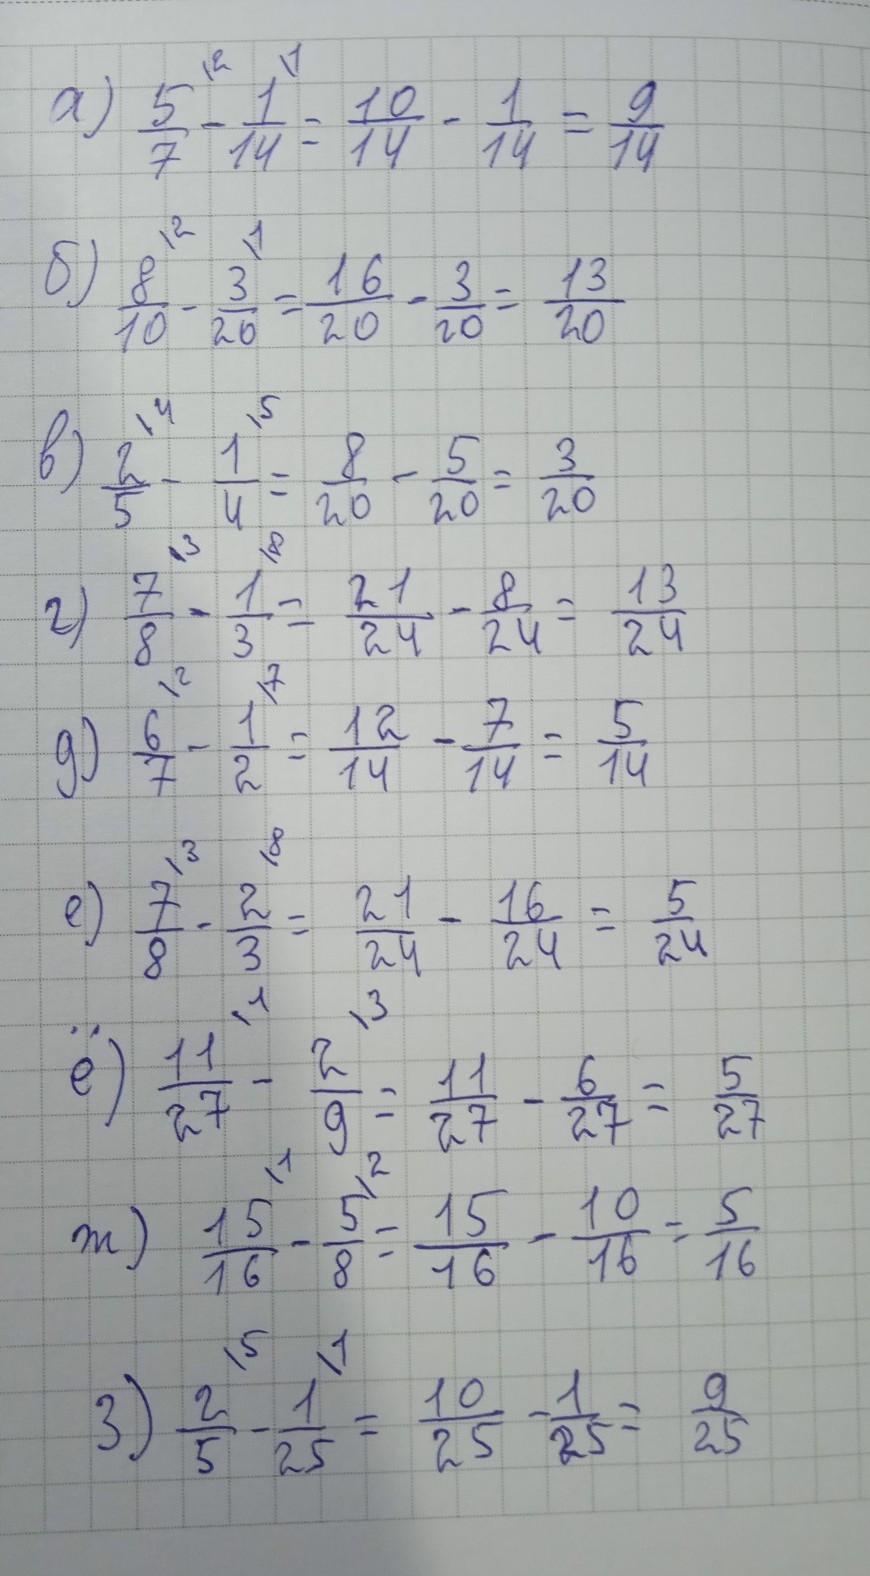 а) 5/7 \2 - 1/14 \1 = 10/14 - 1/14 = 9/14
б) 8/10 \2 - 3/20 \1 = 16/20 - 3/20 = 13/20
в) 2/5 \4 - 1/4 \5 = 8/20 - 5/20 = 3/20
г) 7/8 \3 - 1/3 \8 = 21/24 - 8/24 = 13/24
д) 6/7 \2 - 1/2 \7 = 12/14 - 7/14 = 5/14
е) 7/8 \3 - 2/3 \8 = 21/24 - 16/24 = 5/24
ё) 11/27 \1 - 2/9 \3 = 11/27 - 6/27 = 5/27
ж) 15/16 \1 - 5/8 \2 = 15/16 - 10/16 = 5/16
з) 2/5 \5 - 1/25 \1 = 10/25 - 1/25 = 9/25